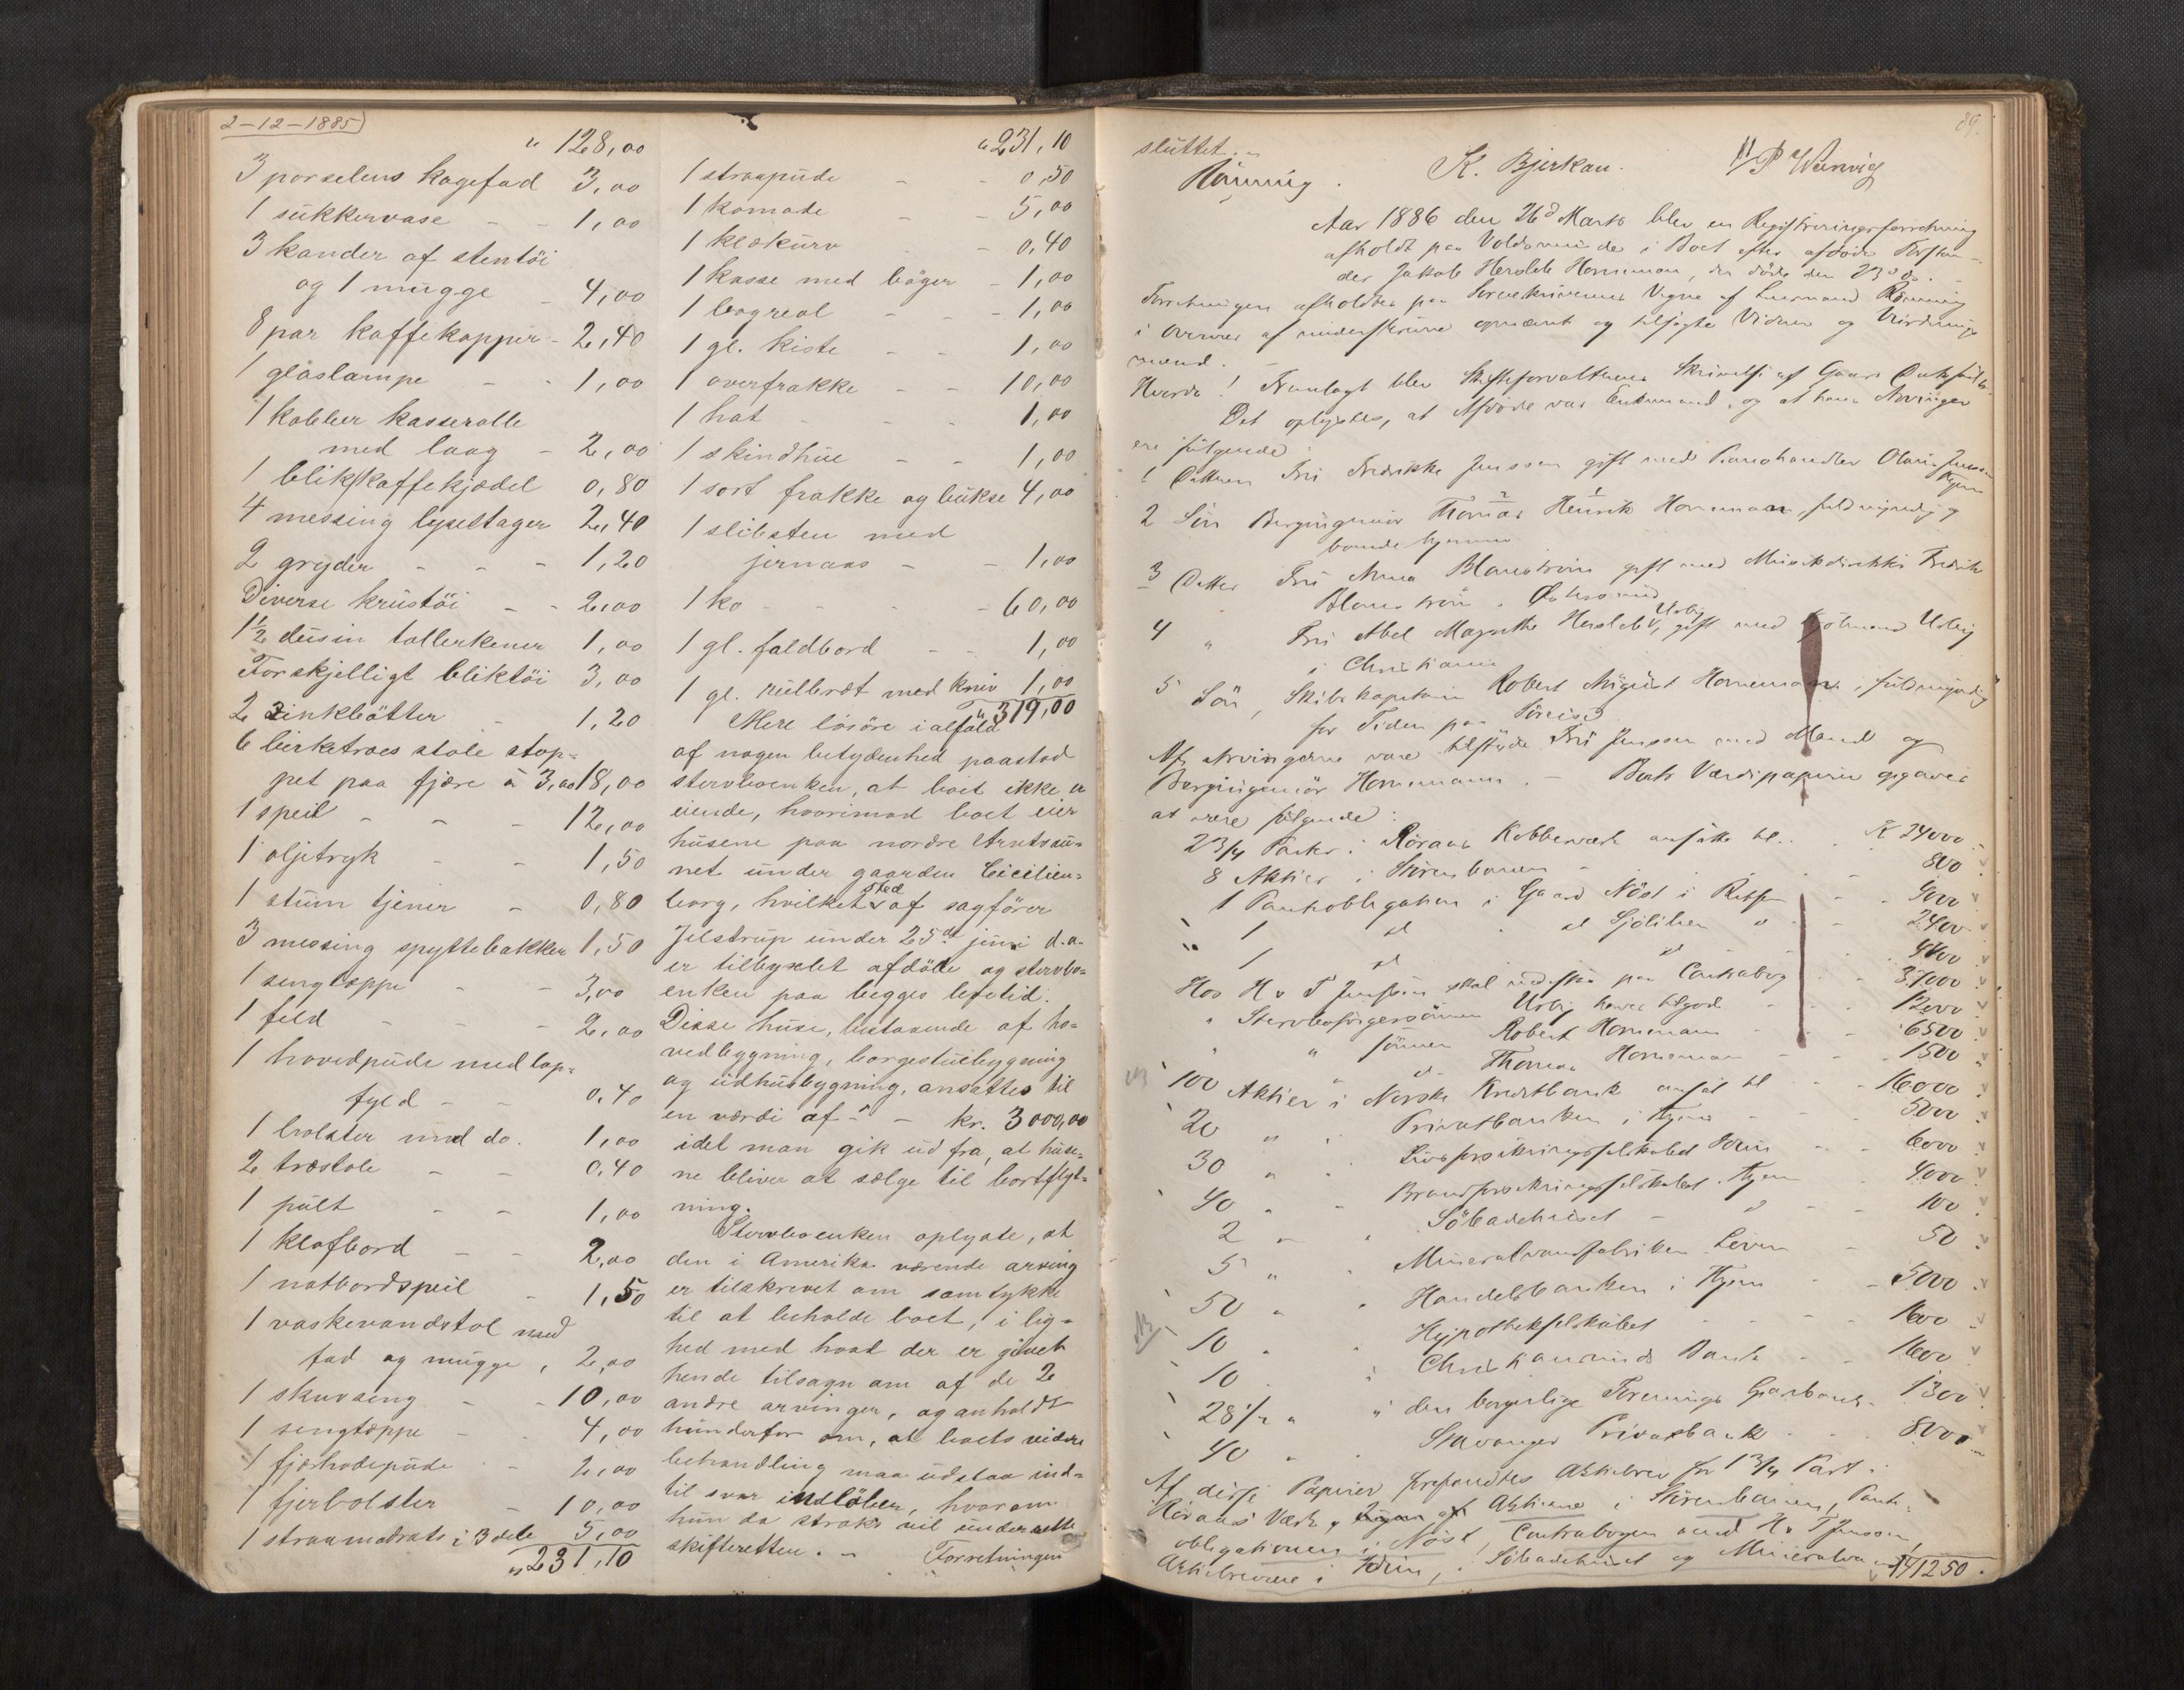 2-12-1885
" 128,00
3 porselens kagefad 3,00
1 sukkervase - - 1,00
3 kander af stentöi
og 1 mugge - 4,00
8 par kaffekopper - 2,40
1 glaslampe - - 1,00
1 kobber kasserolle
med laag - 2,00
1 blikkaffekjedel 0,80
4 messing lysestager 2,40
2 gryder - - - 1,20
Diverse krustöi - - 2,00
1½ dusin tallerkener 1,00
Forskjelligt bliktöi 3,00
2 zinkbötter - 1,20
6 birketræs stole stop=
pet paa fjære à 3,00 18,00
1 speil - - - 12,00
1 oljetryk - - 1,50
1 stum tjener - 0,80
3 messing spyttebakker 1,50
1 sengtæppe - - 3,00
1 feld - - - 2,00
1 hovedpude med lap=
fyld - - 0,40
1 bolster med do. 1,00
2 træstole - - 0,40
1 pult - - 1,00
1 klafbord - - 2,00
1 natbordspeil - 1,50
1 vaskevandstol med
fad og mugge, 2,00
1 skuvseng - - 10,00
1 sengtæppe - - 4,00
1 fjærhodepude - 2,00
1 fjerbolster - 10,00
1 straamadrats i 3 dele 5,00
" 231,10
" 231,10
1 straapude - - 0,50
1 komode - - 5,00
1 klækurv - - 0,40
1 kasse med böger - 1,00
1 bogreol - - - 1,00
1 gl. kiste - - 1,00
1 overfrakke - - 10,00
1 hat - - - 1,00
1 skindhue - - 1,00
1 sort frakke og bukse 4,00
1 slibsten med
jernaas - - 1,00
1 ko - - - - 60,00
1 gl. faldbord - - 1,00
1 gl. rullbræt med kniv 1,00
" 319,00
Mere lösöre ialfald
af nogen betydenhed paastod
stervboenken, at boet ikke er
eiende, hvorimod boet eier
husene paa nordre Arntssu=
net under gaarden Cicilien=
borg, hvilket sted af sagförer
Jelstrup under 25de juni d.a.
er tilbyxlet afdöde og stervbo=
enken paa begges levetid.
Disse huse, bestaaende af ho=
vedbygning, borgestuebygning
og udhusbygning, ansattes til
en værdi af - - kr. 3000,00
idet man gik ud fra, at huse=
ne bliver at sælge til bortflyt=
ning.
Stervboenken oplyste, at
den i Amerika værende arving
er tilskrevet om samtykke
til at beholde boet, i lig=
hed med hvad der er givet
hende tilsagn om af de 2
andre arvinger, og anholdt
hun derfor om, at boets videre
behandling maa udstaa ind=
til svar indlöber, hvorom
hun da straks vil underrette
skifteretten. - Forretningen
89.
sluttet. -
Rönning. K. Bjerkan.
Aar 1886 den 26d Marts blev en Registreringsforretning
afholdt paa Voldsminde i Boet efter afdöde Forstan-
der Jakob Hersleb Hornemann, der döde den 23d ds. -
Forretningen afholdtes paa Sorenskriverens Vegne af Lensmand Rönning
i Overvær af underskrevne opnævnte og tilsagte Vidner og Vurderings
mænd. -
Hvorda! Fremlagt blev Skifteforvalterens Skrivelse af Gaars Dato
Det oplystes, at Afdöde var Enkemand, og at hans Arvinger
ere fölgende:
1 Datteren Fru Fredrikke Jenssen gift med Pianohandler Jenssen
2 Sön Bergingeniör Thomas Henrik Hornemann, fuldmyndig og
boende hjemme
3 Datter Fru Anna Blomström gift med Musikdirektör Fredrik
Blomström, Östersund
4 " Fru Abel Magrethe Hersleb Urbye, gift med Urbye
i Christiania
5 Sön, Skibskaptein Robert August Hornemann, fuldmyndig
for Tiden paa Söreise
Af Arvingerne vare tilstede Fru Jenssen med Mand og
Bergingeniör Hornemann. - Boets Værdipapirer opgaves
at være fölgende:
2 3/4 Parter i Röraas Kobberværk ansatte til . . K 24000
8 Aktier i Störenbanen - 800
1 Pantobligation i Gaard Nöst i - - 9000
" 1 d - d Sjölilien d - - 2400
" 1 d - d - 4400
Hos H & T Jenssen skal indestaa paa Contrabog - 37000
" Urbye haves tilgode - - 12000
" " Sönnen Robert Hornemann - - - 6500
" " d - Thomas Hornemann - - 1500
100 Aktier i Norske Kreditbank ansat til - - 16000
20 " " Privatbanken i Thjem - - 5000
30 " " Livsforsikringsselskabet Idun - - 6000
40 " " Brandforsikringsselskabet Thjem - 4000
2 " " Söbadehuset - d - - 100
5 " " Mineralvandfabriken - 50
50 " " Handelsbanken i Thjem - - 5000
10 " " Hypothekselskabet - - - 1000
10 " " Christiansunds Bank - - 1600
28 1/2 " " den borgerlige Forenings Sparbank - 1300
40 " " Stavanger Privatbank - - - 8000
Af disse Papirer forefandtes Aktiebrev for 1 3/4 Part i
Röraas Værk, Aktierne i Störenbanen, Pant=
obligationen i Nöst, Contrabogen med H & T Jenssen,
Aktiebrevene i Idun, Söbadehuset og Mineralva 141250.